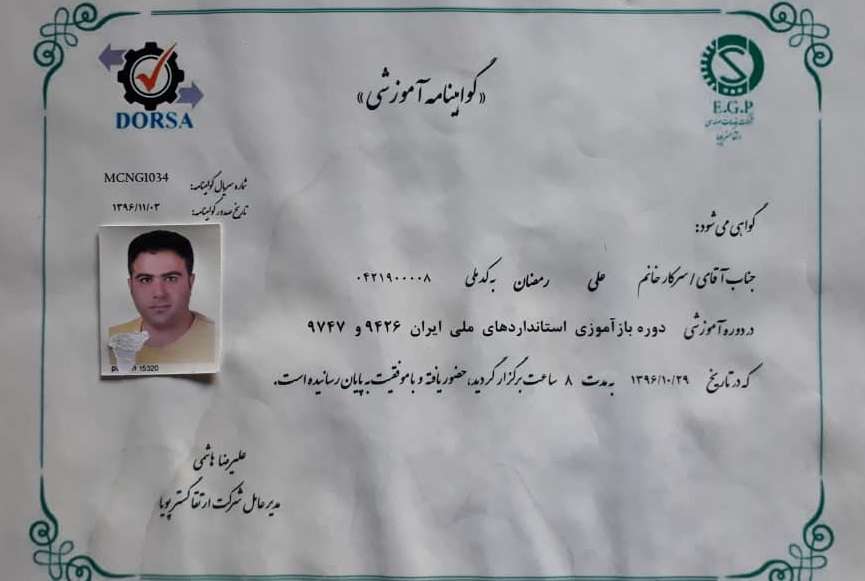 «گواهینامه آموزشی»
DORSA
E.G.P
شرکت خدمات مهندسی
ارتقا گستر پویا
شماره سریال گواهینامه: MCNGI034
تاریخ صدور گواهینامه: ۱۳۹۶/۱۱/۰۳
گواهی می شود:
جناب آقای / سرکار خانم علی رمضان به کد ملی ۰۴۲۱۹۰۰۰۰۸
در دوره آموزشی دوره بازآموزی استانداردهای ملی ایران ۹۴۲۶ و ۹۷۴۷
که در تاریخ ۱۳۹۶/۱۰/۲۹ به مدت ۸ ساعت برگزار گردید، حضور یافته و با موفقیت به پایان رسانیده است.
15320
علیرضا هاشمی
مدیر عامل شرکت ارتقا گستر پویا